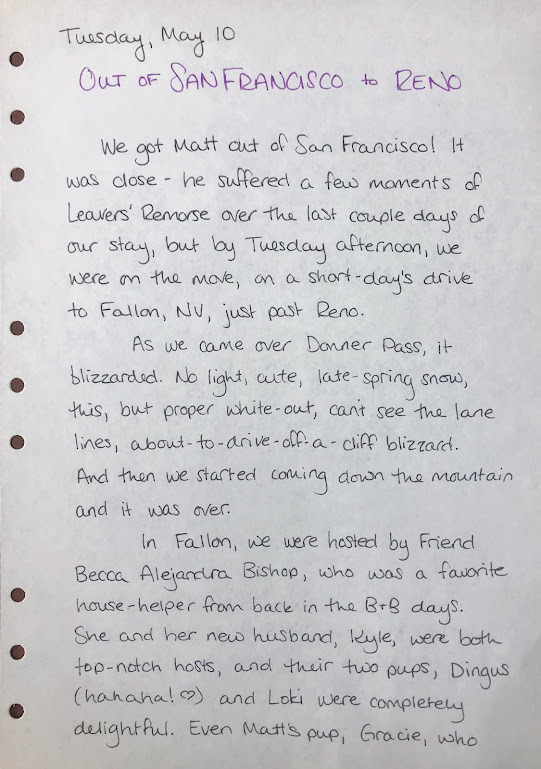 Tuesday, May 10
OUT OF SAN FRANCISCO to RENO
We got Matt out of San Francisco! It
was close - he suffered a few moments of
Leavers' Remorse over the last couple days of
our stay, but by Tuesday afternoon, we
were on the move, on a short-day's drive
to Fallon, NV, just past Reno.
As we came over Donner Pass, it
blizzarded. No light, cute, late-spring snow,
this, but proper white-out, can't see the lane
lines, about-to-drive-off-a-cliff blizzard.
And then we started coming down the mountain
and it was over.
In Fallon, we were hosted by Friend
Becca Alejandra Bishop, who was a favorite
house-helper from back in the B+B days.
She and her new husband, Kyle, were both
top-notch hosts, and their two pups, Dingus
(hahaha! ♡) and Loki were completely
delightful. Even Matt's pup, Gracie, who